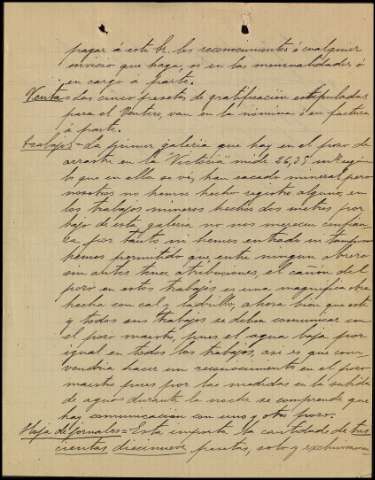 pagar á este Sr. los reconocimientos ó cualquier
servicio que haga, si en las mensualidades ó
en cargo á parte.
Ventas las cinco pesetas de gratificación estipuladas
para el Ventero, van en la nómina ó en factura
á parte.
trabajos = La primer galeria que hay en el piso de
arrastre en la "Victoria" mide 26,35 m
lo que en ella se vé, han sacado mineral pero
nosotros no hemos hecho registro alguno en
los trabajos mineros hechos dos metros por
bajo de esta galeria no nos merecen confian-
za por tanto ni hemos entrado ni tampoco
hemos permitido que entre ningun obrero
sin antes tener atribuciones, el cañon del
pozo en estos trabajos es una magnifica obra
hecha con cal y ladrillo, ahora bien que este
y todos sus trabajos se deben comunicar con
el pozo maestro, pues el agua baja por
igual en todos los trabajos, asi es que con-
vendria hacer un reconocimiento en el pozo
maestro pues por las medidas en la subida
de aguas durante la noche se comprende que
hay comunicación con uno y otro pozo.
Hoja de jornales = Esta importa la cantidad de tres
cientas diecinueve pesetas, solo y exclusiva